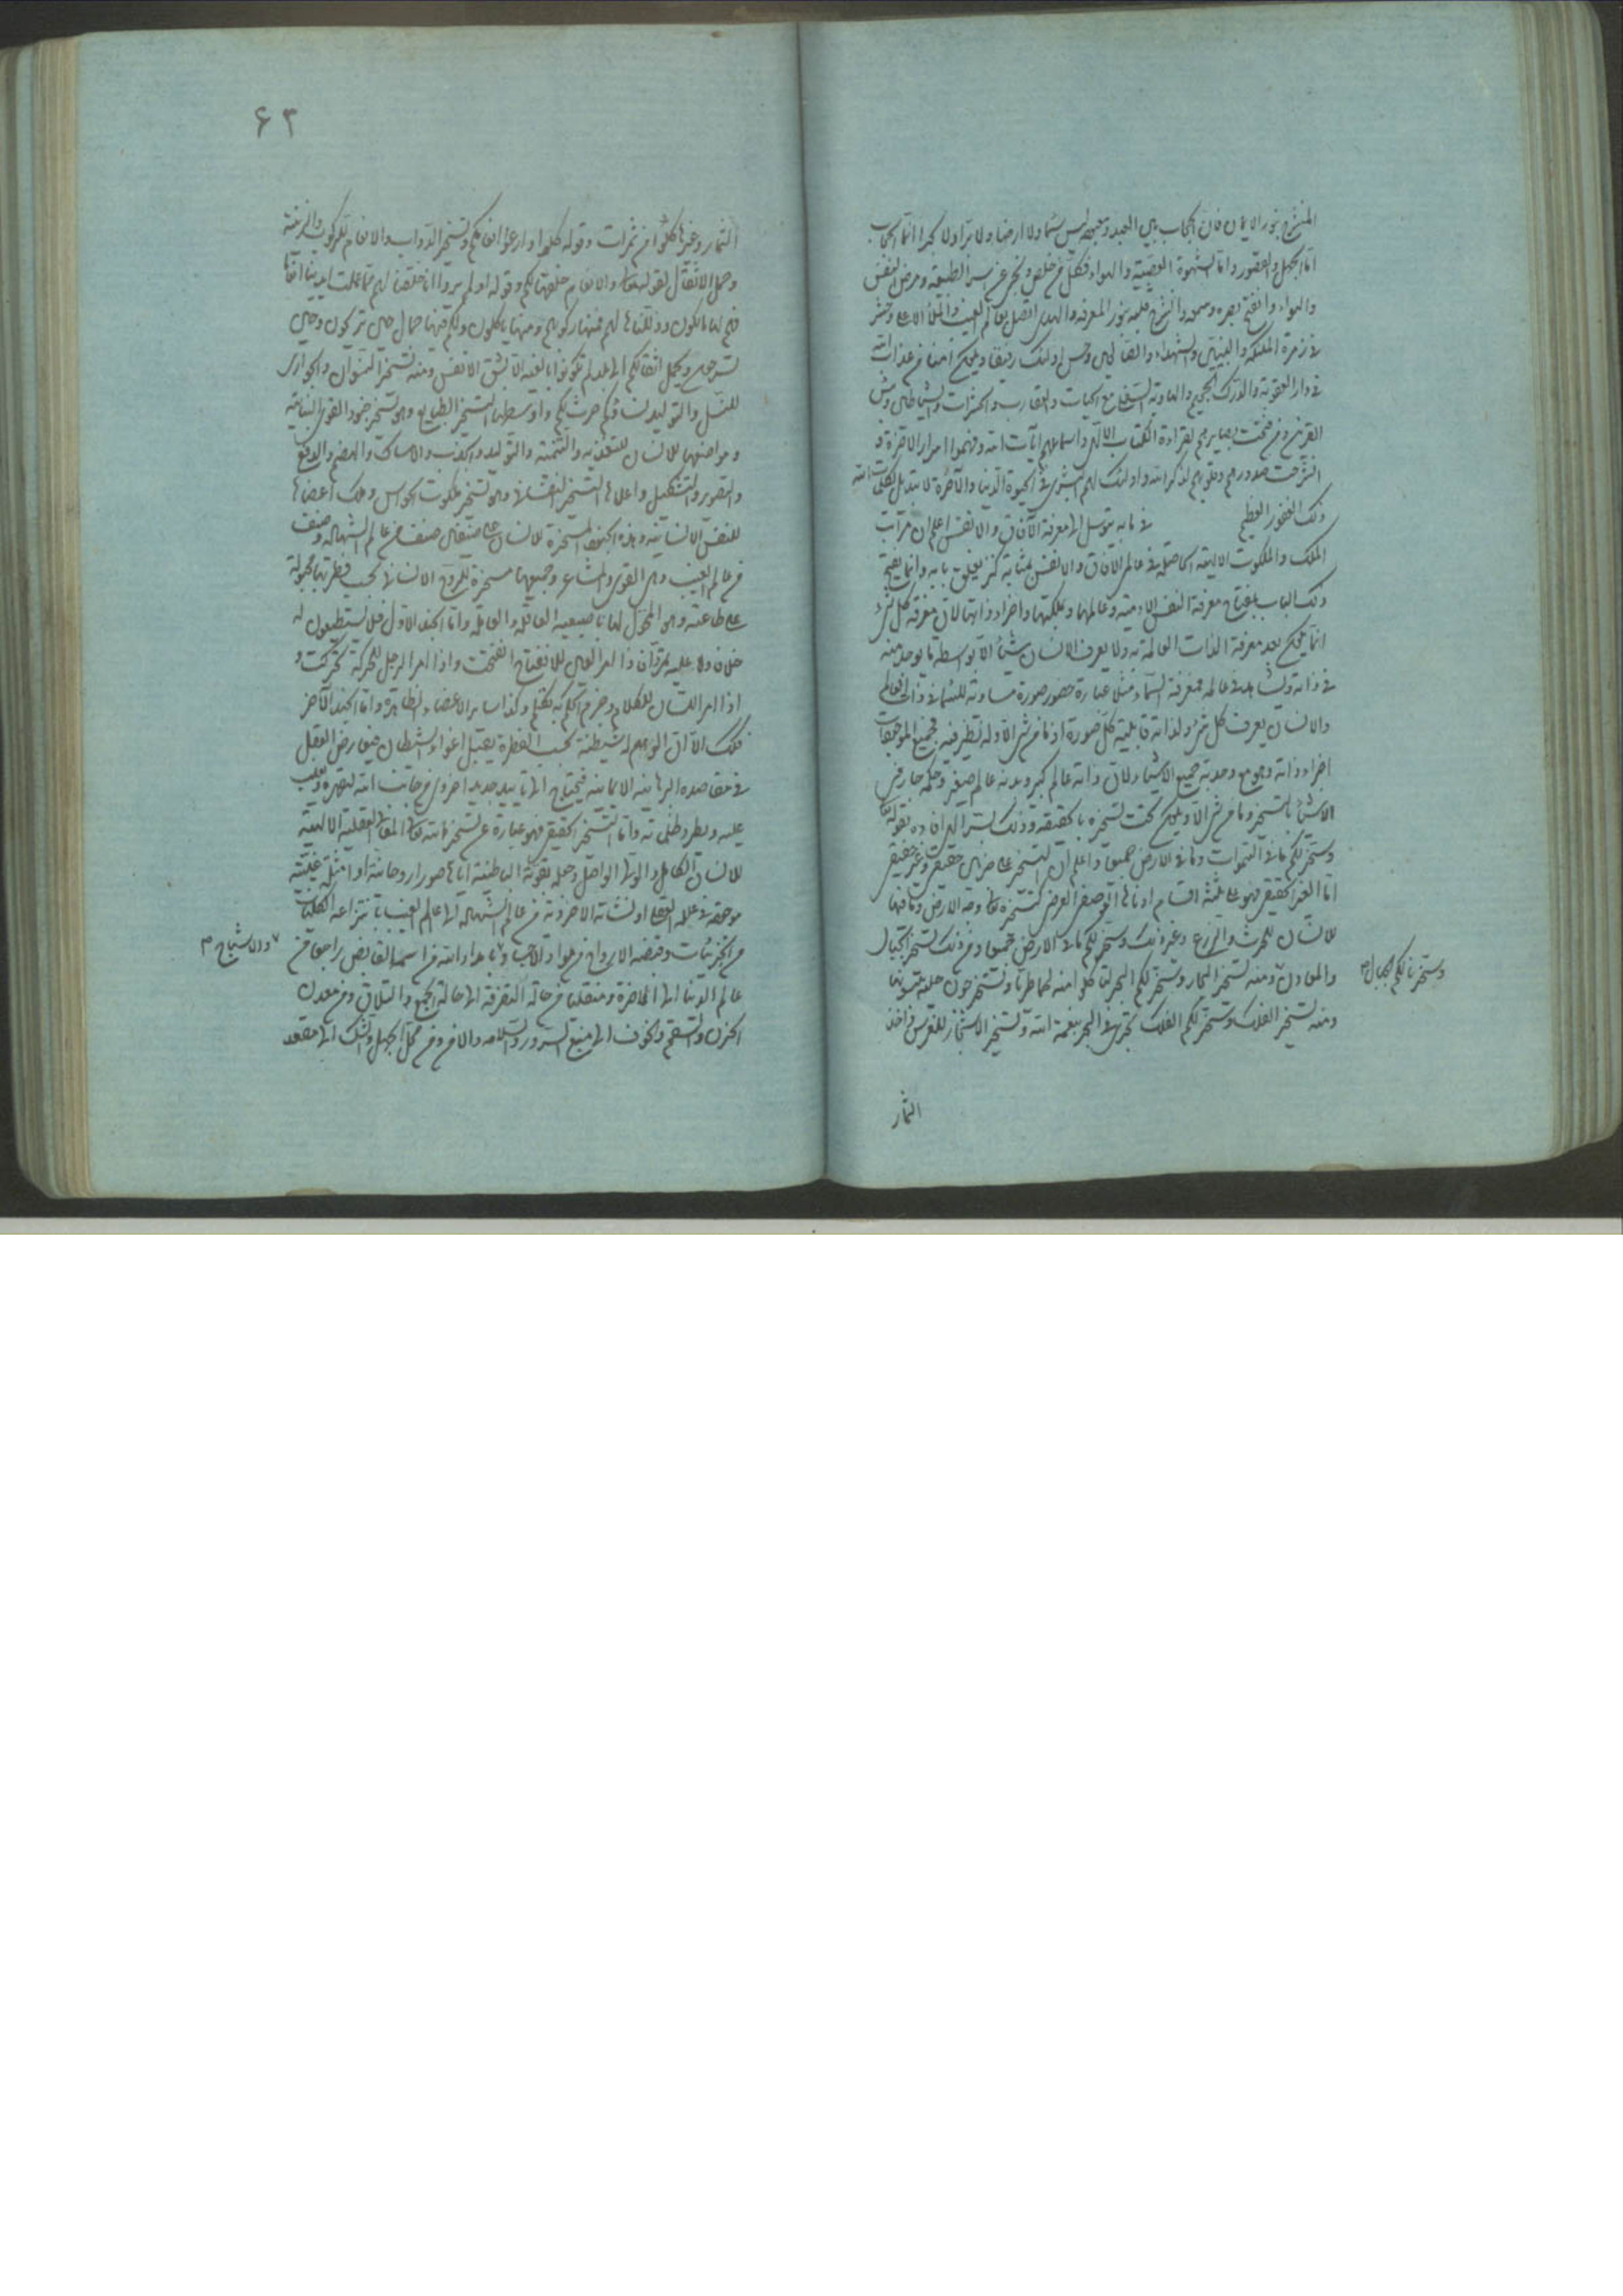 المنشرح بنور الايمان فان الحجاب بين العبد وربه ليس سماء ولا ارضا ولا برا ولا بحرا انما الحجاب
اما الجهل والقصور واما الشهوة والغضب والهواء فكل من خلص ونجى عن اسر الطبيعة ومرض النفس
والهواء وانفتح بصره وسمعه وانشرح قلبه بنور المعرفة والهدى اتصل بعالم الغيب والملأ الاعلى وحشر
في زمرة الملئكة والنبيين والشهداء والصالحين وحسن اولئك رفيقا ويكون آمنا من عذاب الله
في دار العقوبة والدرك الجحيم والهاوية السفلى مع الحيات والعقارب والحشرات والشياطين وبئس
القرين ومن فتحت بصايرهم لقراءة الكتاب الالهي واسماعهم آيات الله وفهموا اسرار الآخرة و
انشرحت صدورهم وقلوبهم لذكر الله واولئك لهم البشرى في الحيوة الدنيا والآخرة لا تبديل لكلمات الله
ذلك الفوز العظيم في ما به يتوسل الى معرفة الآفاق والانفس اعلم ان مراتب
الملك والملكوت الالهية الحاصلة في عالم الآفاق والانفس بمثابة كنز مغلق بابه وانما يفتح
ذلك الباب بمفتاح معرفة النفس الآدمية وعالمها ومملكتها واجزاء ذاتها لان معرفة كل شيء
انما يمكن بعد معرفة الذات العالمة به ولا يعرف الانسان شيئا الا بواسطة ما يوجد منه
في ذاته ويشاهد في عالمه فمعرفة السماء مثلا عبارة حضور صورة مساوية للسماء في ذات العالم
والانسان يعرف كل شيء ولذاته قابلية كل صورة اذ ما من شيء الا وله نظير فيه فجميع الموجودات
اجزاء ذاته وهو مع وحدته جميع الاشياء لان ذاته عالم كبير وبدنه عالم صغير وحكمه جار في
الاشياء بالتسخير وما من شيء الا ويكون تحت تسخيره بالحقيقة وذلك يستر الهي افاده بقوله تعالى
وسخر لكم ما في السموات وما في الارض جميعا واعلم ان التسخير على ضربين حقيقي وغير حقيقي
اما الغير الحقيقي فهو على ثلثة اقسام ادناها الوضعي العرضي كتسخيره تعالى وجه الارض وما فيها
للانسان للحرث والزرع وغير ذلك وسخر لكم ما في الارض جميعا ومن ذلك تسخير الجبال
والمعادن ومنه تسخير البحار وسخر لكم البحر لتاكلوا منه لحما طريا وتستخرجون حلية تلبسونها
ومنه تسخير الفلك وسخر لكم الفلك تجري في البحر بنعمة الله وتسخير الاشجار للغرس واخذ
وسخرنا لكم الجبال م
الثمار
۶۳
الثمار وغيرها كلوا من ثمرات وقوله كلوا وارعوا انعامكم وتسخير الدواب والانعام للركوب والزينة
وحمل الاثقال لقوله تعالى والانعام خلقها لكم وقوله اولم يروا انا خلقنا لهم مما عملت ايدينا انعاما
فهم لها مالكون وذللناها لهم فمنها ركوبهم ومنها ياكلون ولكم فيها جمال حين تريحون وحين
تسرحون وتحمل اثقالكم الى بلد لم تكونوا بالغيه الا بشق الانفس ومنه تسخير النسوان والجواري
للنسل والتوليد نساؤكم حرث لكم واوسطها التسخير الطبايع وهو تسخير جنود القوى النباتية
ومواضعها للانسان للتغذية والتنمية والتوليد والجذب والامساك والهضم والدفع
والتصوير والتشكيل واعلاها التسخير النفساني وهو تسخير ملكوت الحواس وملك اعضائها
للنفس الانسانية وهذه الجنود المسخرة للانسان على صنفين صنف من عالم الشهادة وصنف
من عالم الغيب وهي القوى والمشاعر وجميعها مسخرة للروح الانساني بحسب فطرتها مجبولة
على طاعته وهو المخول لها باصبعيه العاقلة والعاملة واما الجند الاول فلا يستطيعون له
خلافا ولا عليه تمردا فاذا امر العين للانفتاح انفتحت واذا امر الرجل للحركة تحركت و
اذا امر اللسان للكلام وجزم الحكم به تكلم وكذا ساير الاعضاء الظاهرة واما الجند الآخر
فكذلك الا ان الوهم له شيطنة بحسب الفطرة يقبل اغواء الشيطان فيعارض العقل
في مقاصده البرهانية الايمانية فيحتاج الى تاييد جديد اخروي من جانب الله لتقهره وتغلب
عليه ويطرد ظلماته واما التسخير الحقيقي فهو عبارة عن تسخير الله تعالى المعاني العقلية الالهية
للانسان الكامل والولي الواصل وجعله بقوته الباطنية اياها صورا روحانية او امثلة غيبية
موجودة في علمه العقلي او نشاته الاخروية من عالم الشهادة الى عالم الغيب بانتزاعه الكليات
من الجزئيات وقبضه الارواح من مواد الاجساد باعداد الله من اسمه القابض راجعا من
عالم الدنيا الى الآخرة ومنقلبا من حالة التفرقة الى حالة الجمع والتلاق ومن معدن
الحزن والسقم والخوف الى منبع السرور والسلامة والامن ومن محل الجهل والشك الى مقعد
والاشباح م